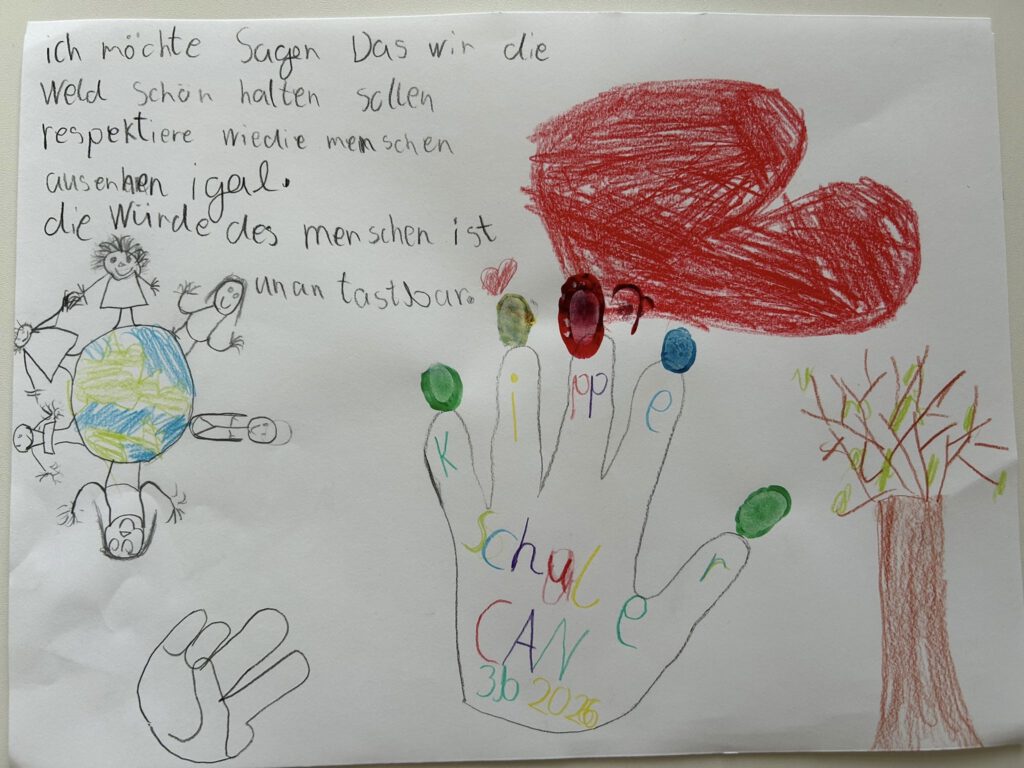 ich möchte Sagen Das wir die
Weld schön halten sollen
respektiere wiedie menschen
ausenhen igal.
die Würde des menschen ist
unan tastbar.
Kipperer
Schul
CAN
3b 2026